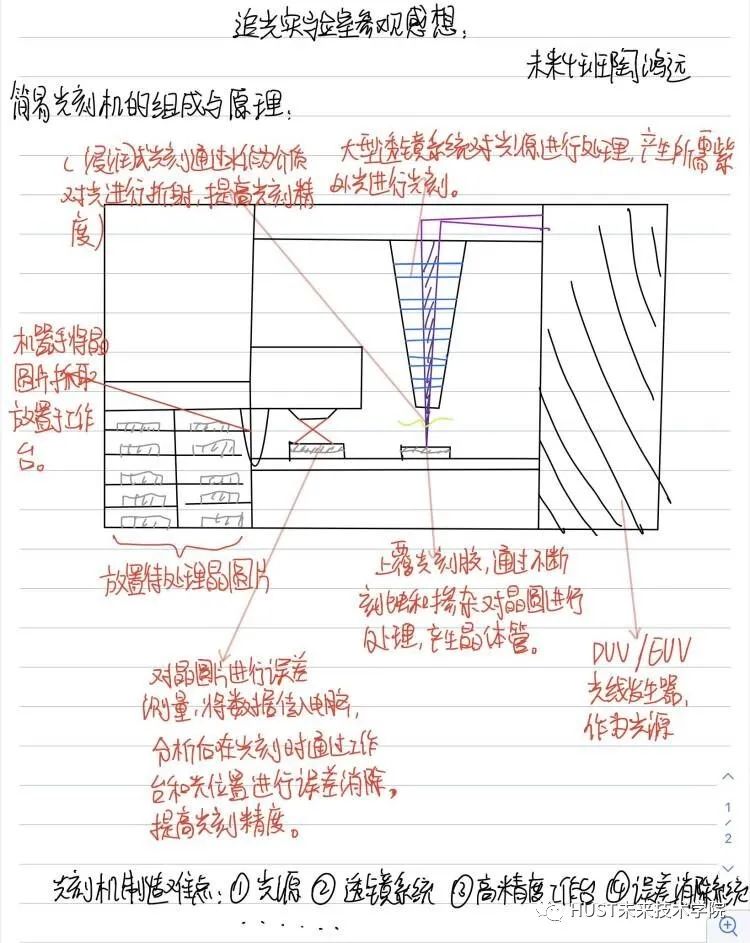 追光实验室参观感想：
未来4班陶鸿远
简易光刻机的组成与原理：
(浸润式光刻通过水作为介质
对光进行折射，提高光刻精
度)
大型透镜系统对光源进行处理，产生所需紫
外光进行光刻。
机器手将晶
圆片抓取
放置于工作
台。
放置待处理晶圆片
上覆光刻胶，通过不断
刻蚀和掺杂对晶圆进行
处理，产生晶体管。
对晶圆片进行误差
测量，将数据传入电脑，
分析后在光刻时通过工作
台和光位置进行误差消除，
提高光刻精度。
DUV/EUV
光线发生器，
作为光源
1/2
光刻机制造难点：① 光源 ② 透镜系统 ③ 高精度工作台 ④ 误差消除系统
······
HUST未来技术学院